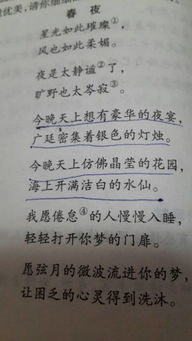 优美，请你细细
春夜
星光如此璀璨①，
风也如此柔媚。
夜是太静谧②了，
旷野也太岑寂③。
今晚天上想有豪华的夜宴，
广廷密集着银色的灯烛。
今晚天上仿佛晶莹的花园，
海上开满洁白的水仙。
我愿倦怠④的人慢慢入睡，
轻轻打开你梦的门扉。
愿弦月的微波流进你的梦，
让困乏的心灵得到洗沐。